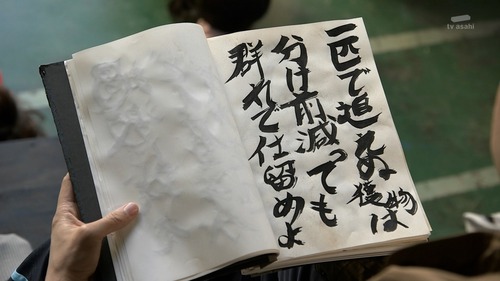 一匹で追えぬ獲物は
分け前減っても
群れで仕留めよ
tv asahi